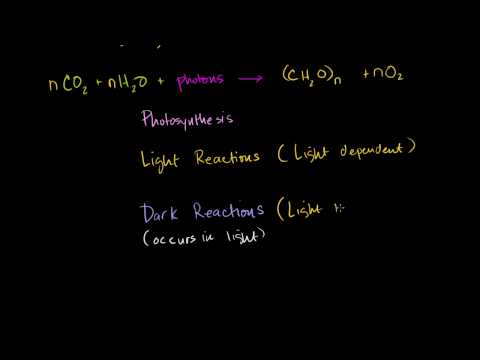 nCO₂ + nH₂O + photons → (CH₂O)ₙ + nO₂
Photosynthesis
Light Reactions (Light dependent)
Dark Reactions (Light
(occurs in light)